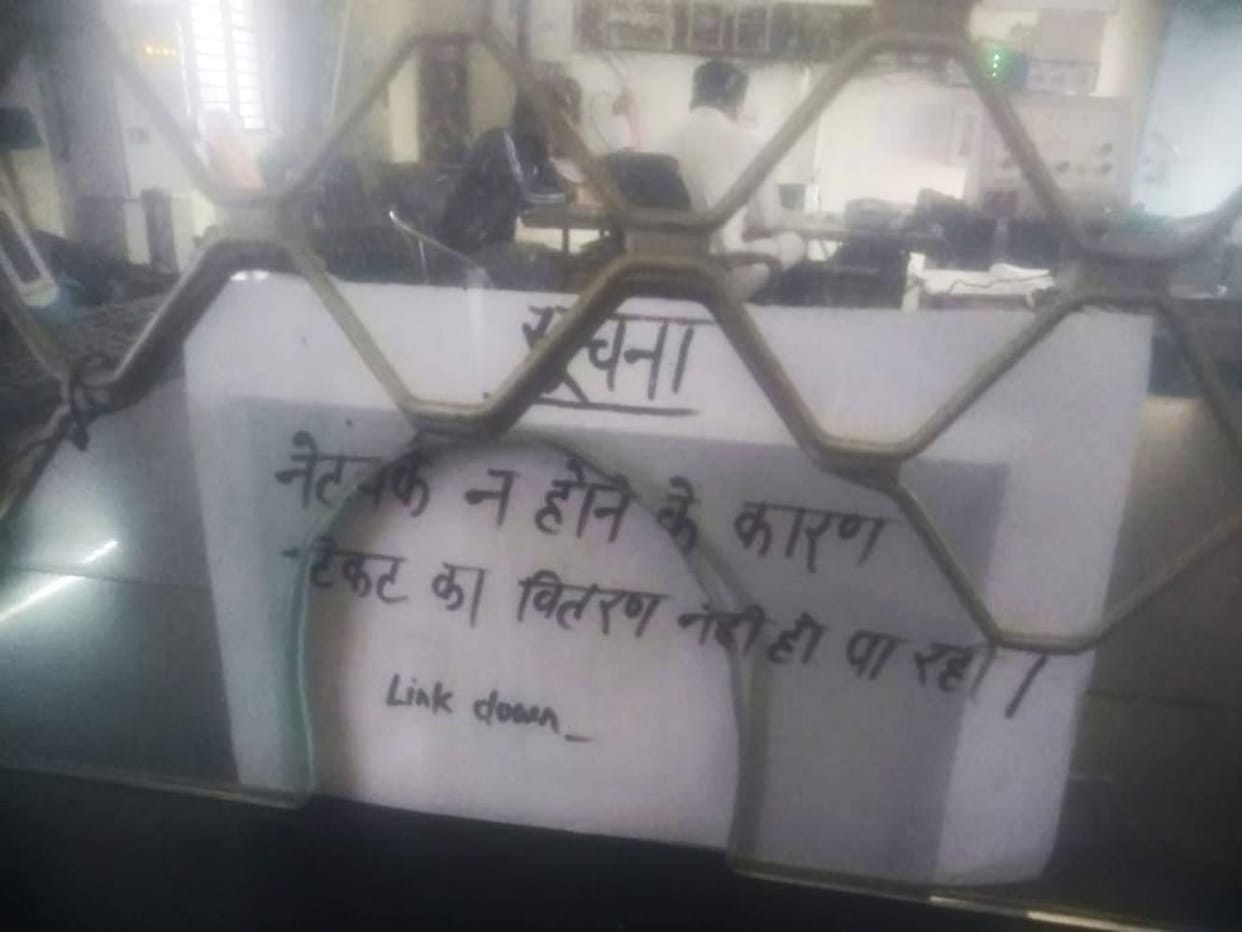 सूचना
नेटवर्क न होने के कारण
टिकट का वितरण नंही हो पा रहा ।
Link down_